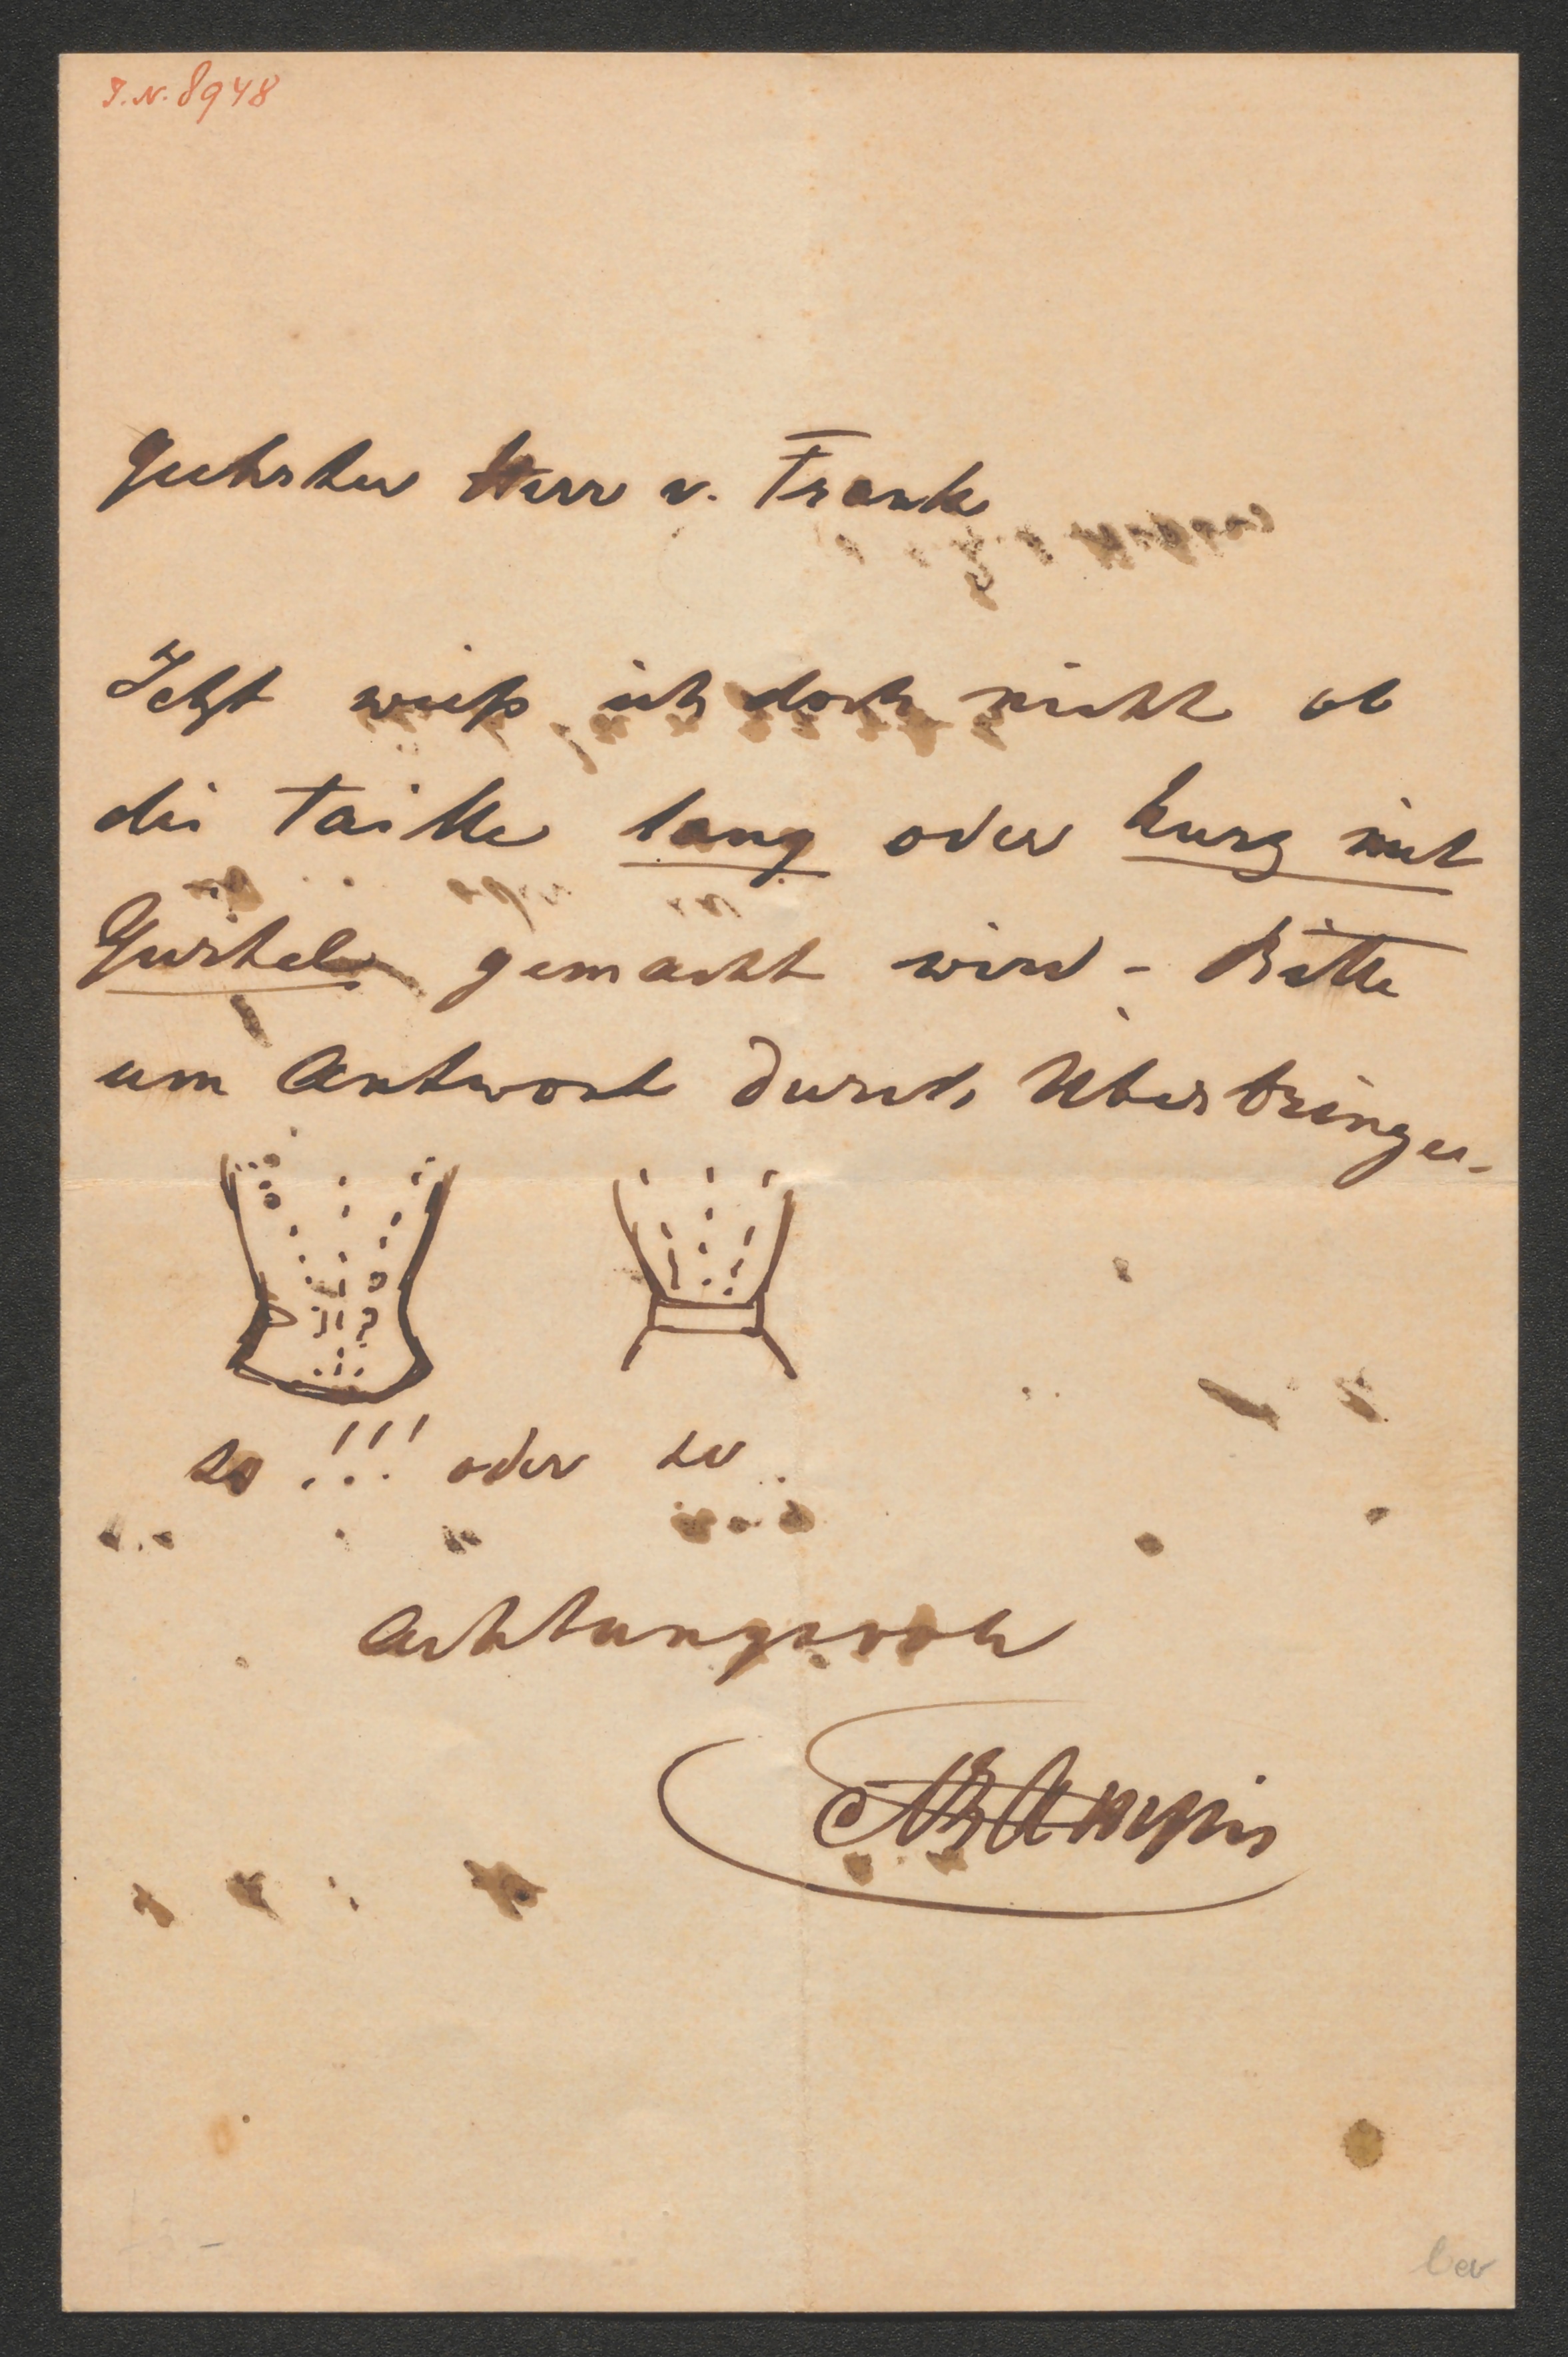 J.N. 8948
Geehrter Herr v. Frank
Jetzt weiß ich doch nicht ob
die Taille lang oder kurz mit
Gürtel gemacht wird - Bitte
um Antwort durch Überbringer -
so !!! oder so
Achtungsvoll